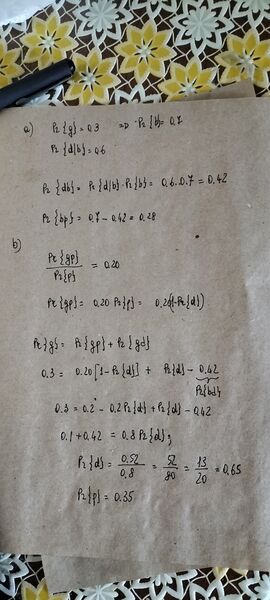 a) Pr{g} = 0.3 => Pr{b} = 0.7
Pr{d|b} = 0.6
Pr{db} = Pr{d|b}·Pr{b} = 0.6·0.7 = 0.42
Pr{bp} = 0.7 - 0.42 = 0.28
b)
Pr{gp}/Pr{p} = 0.20
Pr{gp} = 0.20 Pr{p} = 0.20(1-Pr{d})
Pr{g} = Pr{gp} + Pr{gd}
0.3 = 0.20[1-Pr{d}] + Pr{d} - 0.42
Pr{bd}
0.3 = 0.2 - 0.2Pr{d} + Pr{d} - 0.42
0.1 + 0.42 = 0.8 Pr{d};
Pr{d} = 0.52/0.8 = 52/80 = 13/20 = 0.65
Pr{p} = 0.35